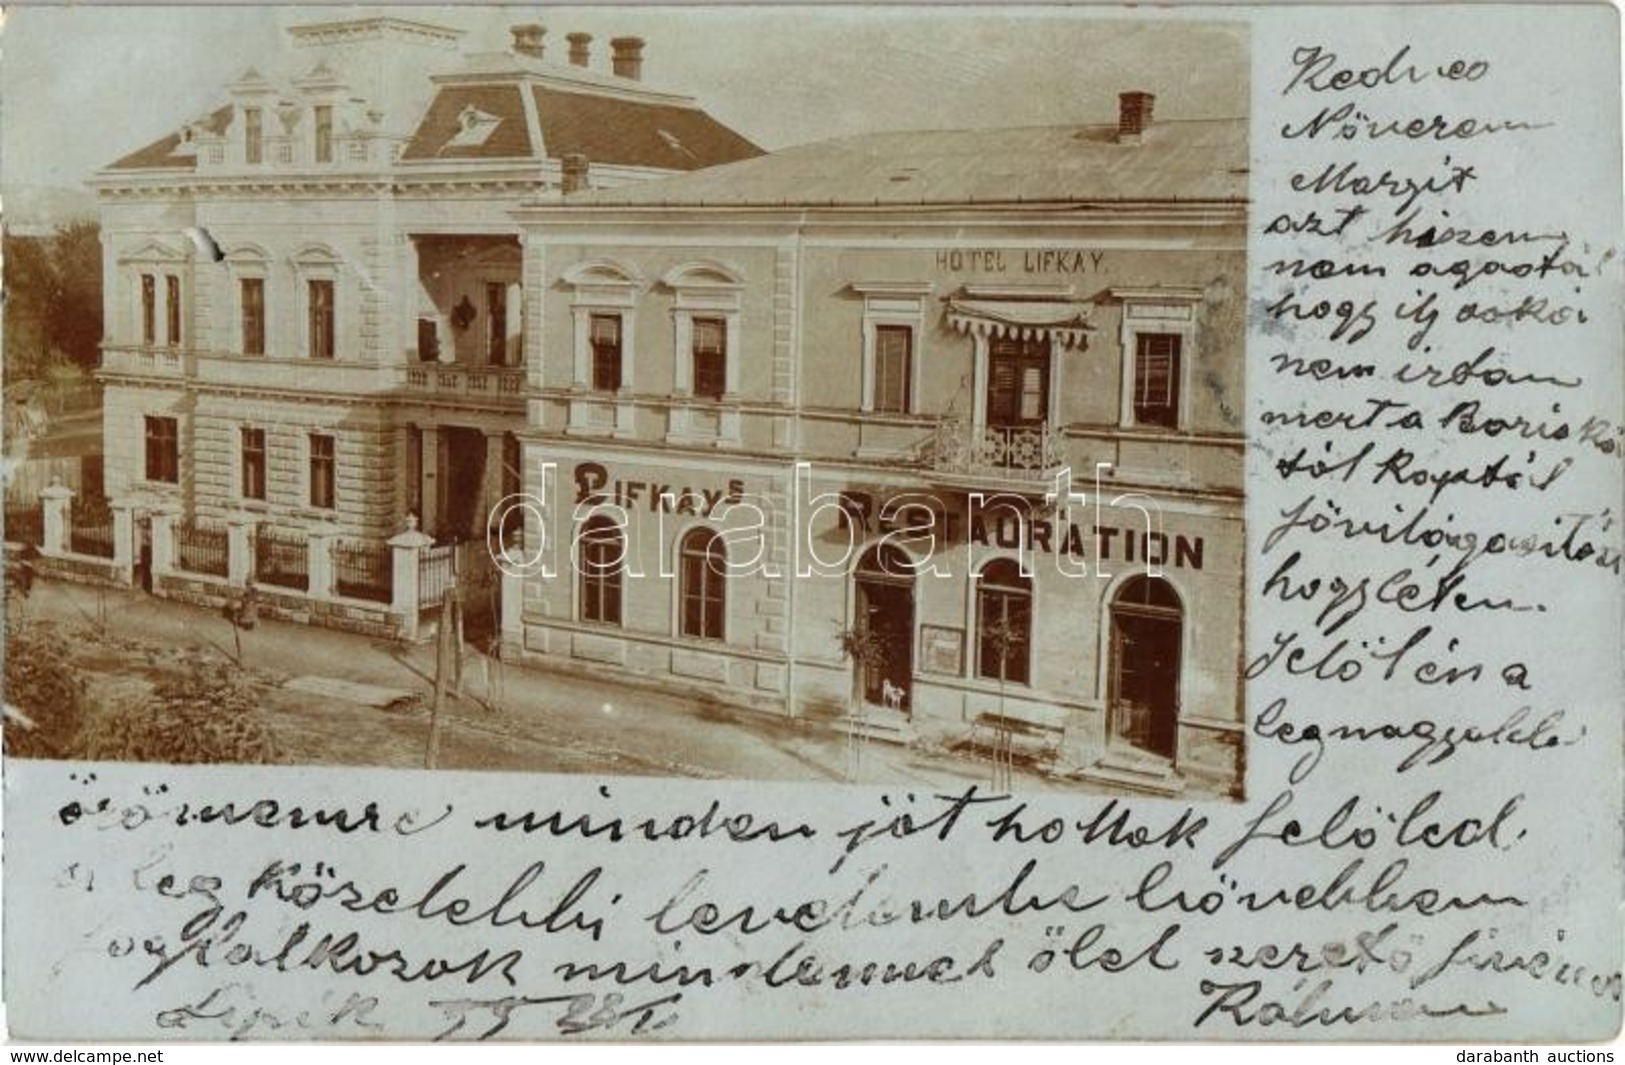 HOTEL LIFKAY.
LIFKAYS
RESTAURATION
darabanth
Kedves
Növerem
Margit
azt hiszem
nem
hogy ily soká
nem irtam
mert a Boriská
tól kaptál
fövilágositást
hogylétem
felöl én a
legnagyobb
örömemre minden jót hallok felöled.
a leg közelebbi levelembe bövebben
foglalkozok mindennel ölel szeretö
Lipik
Kálmán
www.delcampe.net
darabanth auctions